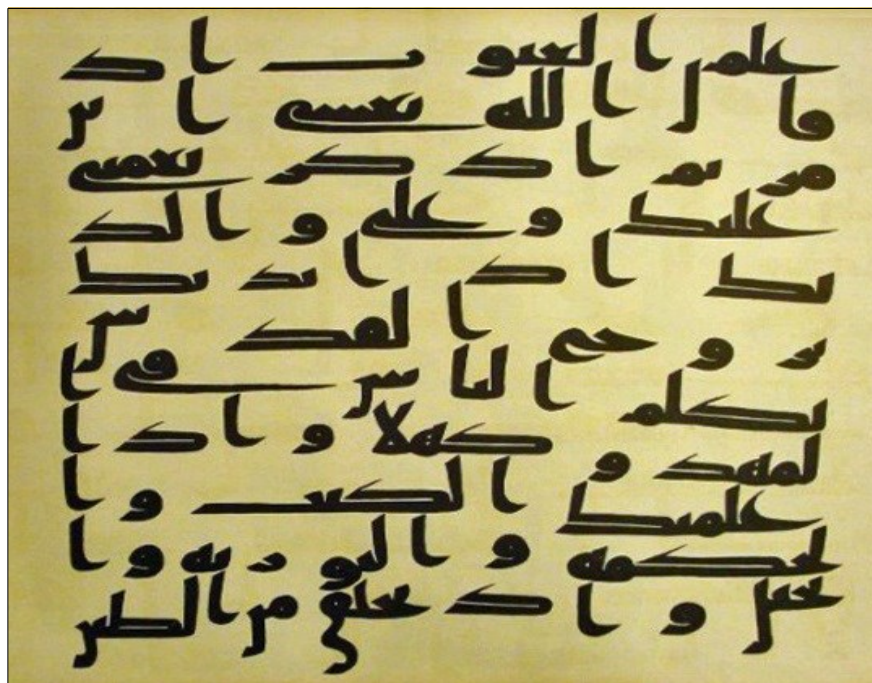 علم الغيوب اذ
قال الله يعيسى ابن
مريم اذكر نعمتي
عليك وعلى والد
تك اذ ايدتك
بروح القدس
تكلم الناس في ا
لمهد وكهلا واذ ا
علمتك الكتب وا
لحكمه والتوريه وا
نجيل واذ تخلق من الطين